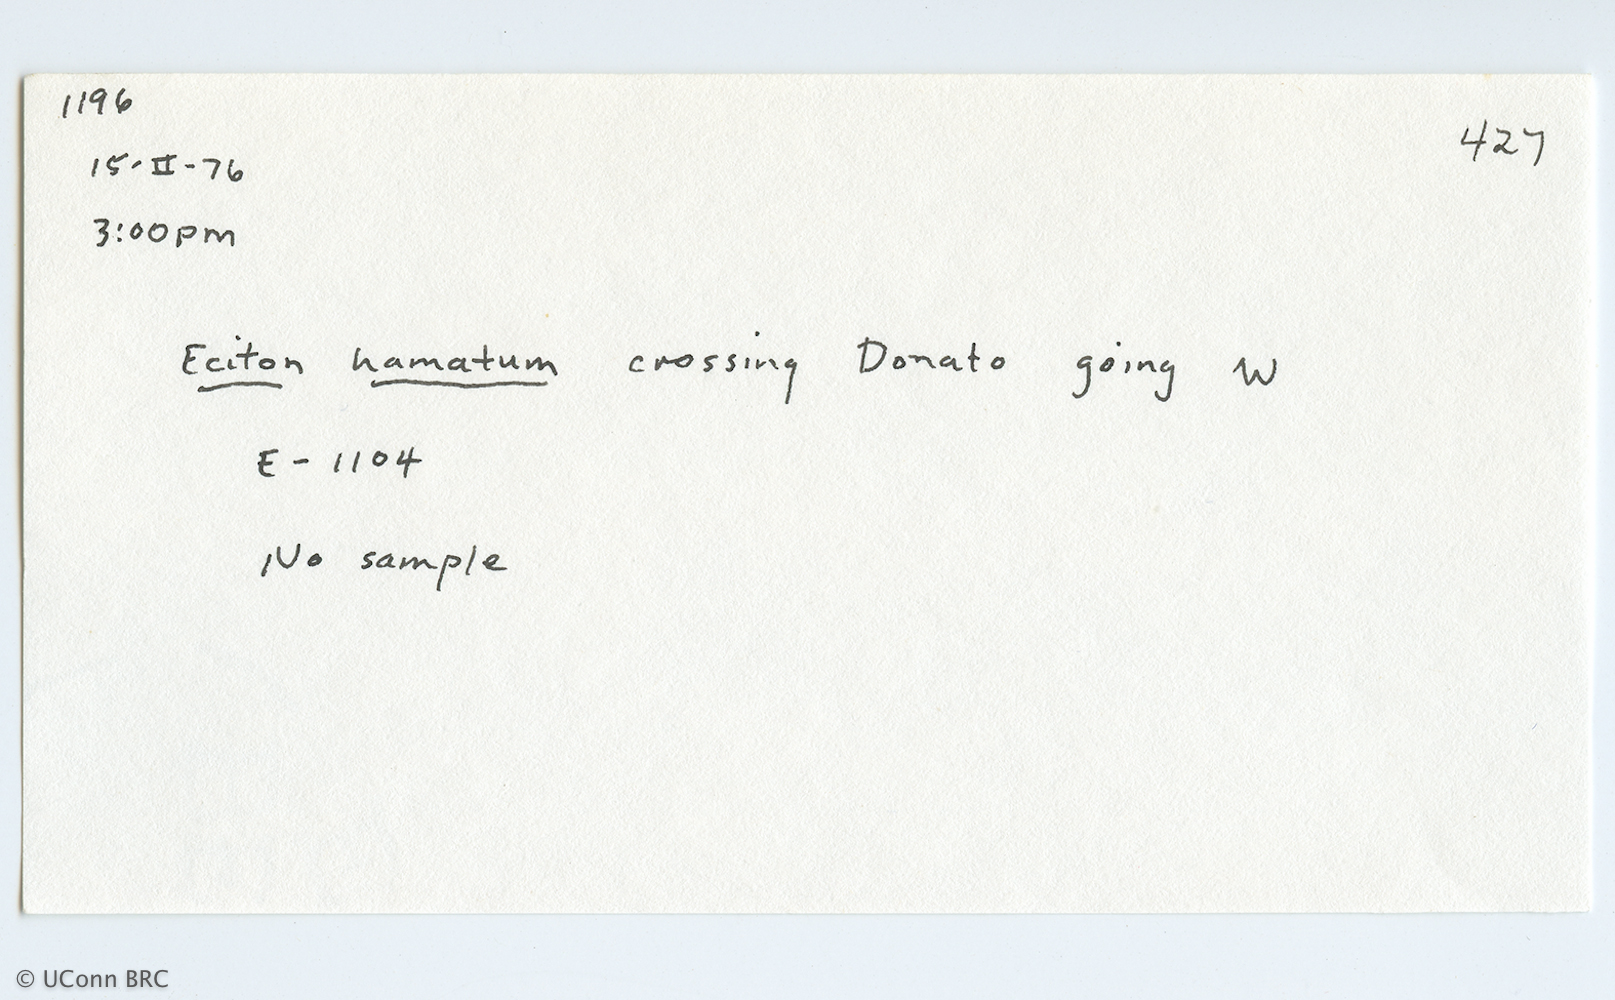 1196
427
15-II-76
3:00pm
Eciton hamatum crossing Donato going W
E-1104
No sample
© UConn BRC